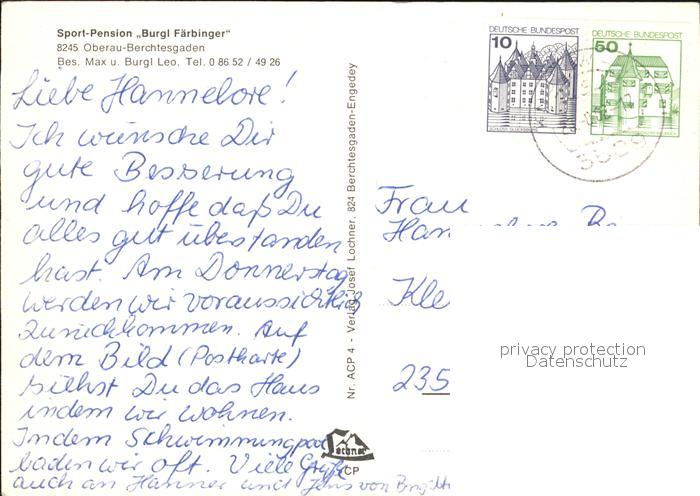 Sport-Pension „Burgl Färbinger"
8245 Oberau-Berchtesgaden
Bes. Max u. Burgl Leo. Tel. 0 86 52 / 49 26
Liebe Hannelore!
Ich wünsche Dir
gute Besserung
und hoffe daß Du
alles gut überstanden
hast. Am Donnerstag
werden wir voraussichtlich
zurückkommen. Auf
dem Bild (Postkarte)
siehst Du das Haus
indem wir wohnen.
Indem Schwimmingpool
baden wir oft. Viele Grüße
auch an Hanner und Jens von Brigitt
Nr. ACP 4 - Verlag Josef Lochner, 824 Berchtesgaden-Engedey
Lochner
CP
10 DEUTSCHE BUNDESPOST
SCHLOSS GLÜCKSBURG
50 DEUTSCHE BUNDESPOST
Frau
Han
Kle
235
privacy protection
Datenschutz